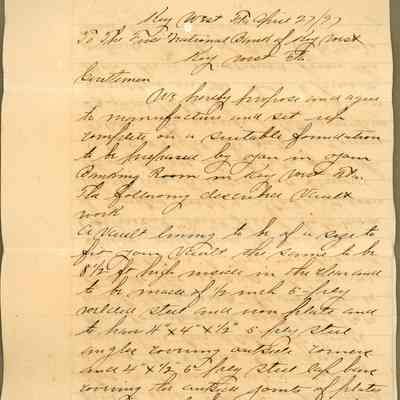 Key West Fla April 27/97
To The First National Bank of Key West
Key West Fla
Gentlemen
We hereby propose and agree
to manufacture and set up
complete on a suitable foundation
to be prepared by you in your
Banking Room in Key West Fla.
The following described Vault
work
A Vault lining to be of a size to
fit your Vault the same to be
8 1/2 ft high inside in the clear and
to be made of 1/2 inch 5-ply
welded steel and iron plates and
to have 4" x 4" x 1/2" 5 ply steel
angles covering outside corners
and 4" x 1/2 5 ply steel
covering the outside joints of plates